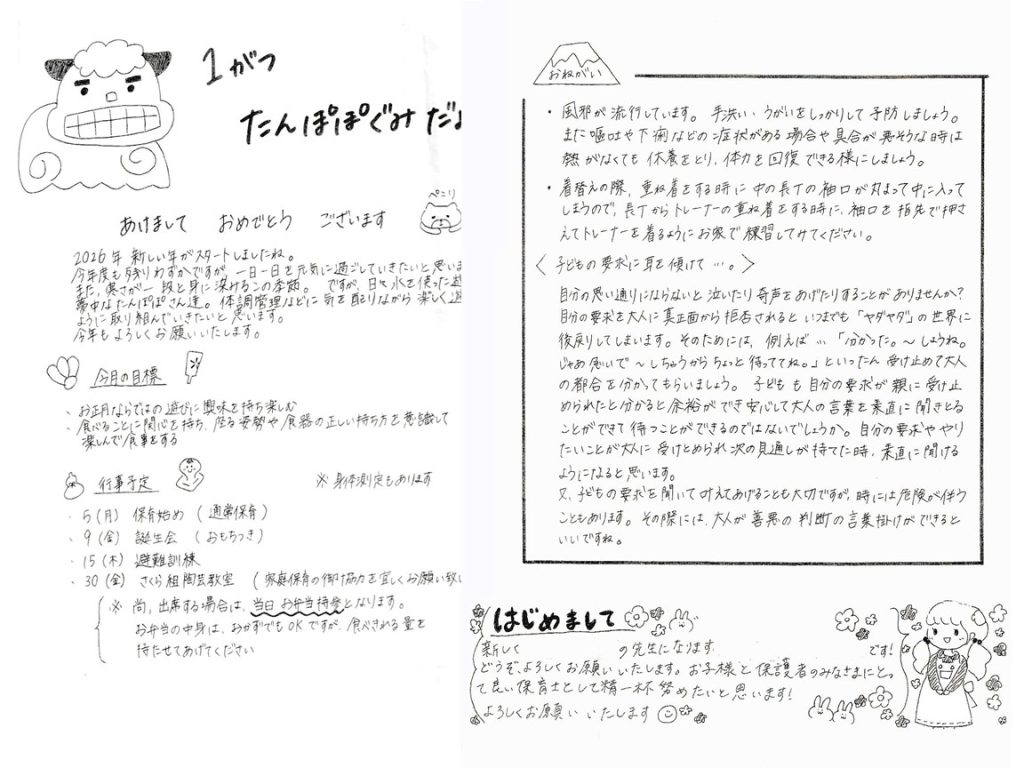 1がつ
たんぽぽぐみ だよ
ぺこり
あけまして おめでとう ございます
2026年 新しい年がスタートしましたね。
今年度も残りわずかですが、一日一日を元気に過ごしていきたいと思いま
また、寒さが一段と身に染みるこの季節。ですが、日々氷を使った遊
夢中なたんぽぽさん達。体調管理などに気を配りながら楽しく遊
ように取り組んでいきたいと思います。
今年もよろしくお願いいたします。
今月の目標
・お正月ならではの遊びに興味を持ち楽しむ
・食べることに関心を持ち、座る姿勢や食器の正しい持ち方を意識して
楽しんで食事をする
行事予定
※身体測定もあります
・5(月) 保育始め (通常保育)
・9(金) 誕生会 (おもちつき)
・15(木) 避難訓練
・30(金) さくら組陶芸教室 (家庭保育の御協力を宜しくお願い致し
※尚、出席する場合は、当日お弁当持参となります。
お弁当の中身は、おかずでもOKですが、食べきれる量を
持たせてあげてください
おねがい
・風邪が流行しています。手洗い・うがいをしっかりして予防しましょう。
また嘔吐や下痢などの症状がある場合や具合が悪そうな時は
熱がなくても休養をとり、体力を回復できる様にしましょう。
・着替えの際、重ね着をする時に中の長Tの袖口が丸まって中に入って
しまうので、長Tからトレーナーの重ね着をする時に、袖口を指先で押さ
えてトレーナーを着るようにお家で練習してみてください。
〈子どもの要求に耳を傾けて…。〉
自分の思い通りにならないと泣いたり奇声をあげたりすることがありませんか?
自分の要求を大人に真正面から拒否されるといつまでも「ヤダヤダ」の世界に
後戻りしてしまいます。そのためには、例えば…「分かった。〜しようね。
じゃあ急いで〜しちゅうからちょっと待っててね。」といったん受け止めて大人
の都合を分かってもらいましょう。子どもも自分の要求が親に受け止
められたと分かると余裕ができ安心して大人の言葉を素直に聞きとる
ことができて待つことができるのではないでしょうか。自分の要求ややり
たいことが大人に受けとめられ次の見通しが持てた時、素直に聞ける
ようになると思います。
又、子どもの要求を聞いて叶えてあげることも大切ですが、時には危険が伴う
こともあります。その際には、大人が善悪の判断の言葉掛けができると
いいですね。
はじめまして
新しく の先生になります です!
どうぞよろしくお願いいたします。お子様と保護者のみなさまにとっ
て良い保育士として精一杯努めたいと思います!
よろしくお願いいたします